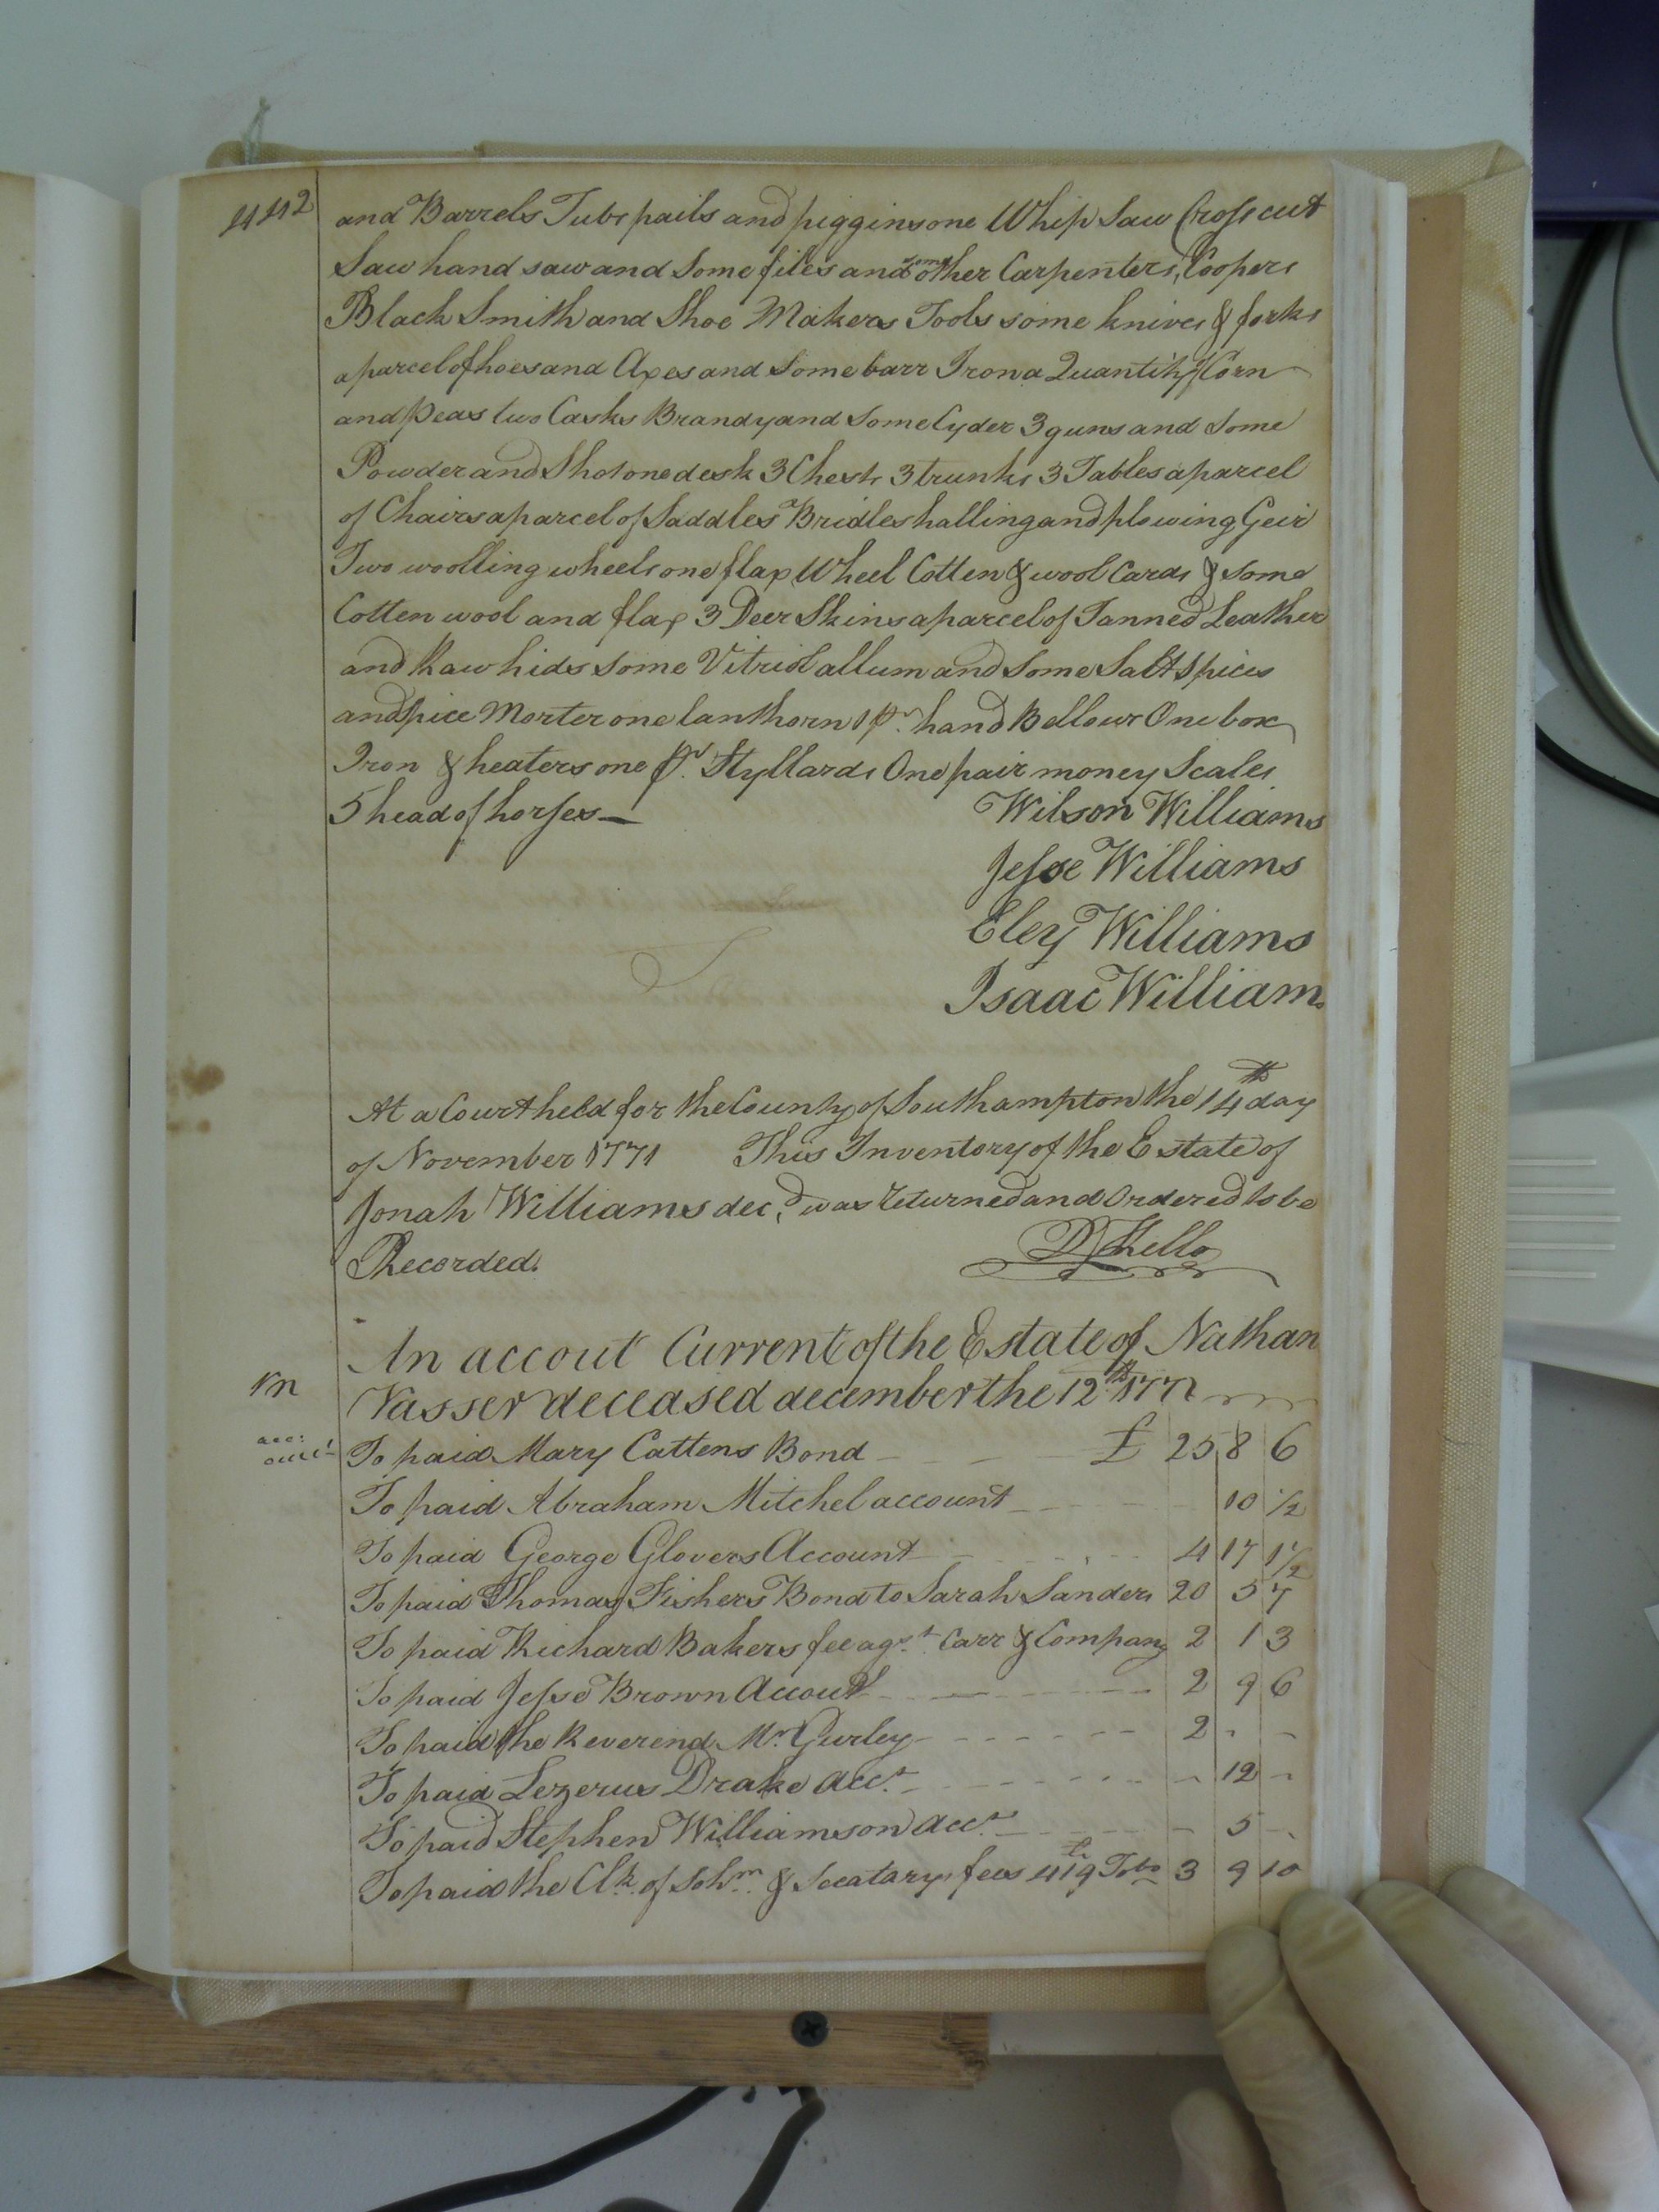 442
and Barrels Tubs pails and piggins one Whip Saw Cross cut
Saw hand saw and Some files and some other Carpenters, Coopers
Black Smith and Shoe Makers Tools some knives & forks
a parcel of hoes and Axes and Some barr Iron a Quantity of Corn
and Peas two Casks Brandy and Some Cyder 3 guns and Some
Powder and Shot one desk 3 Chests 3 trunks 3 Tables a parcel
of Chairs a parcel of Saddles Bridles halling and plowing Geir
Two woolling wheels one flax Wheel Cotten & wool Cards & Some
Cotten wool and flax 3 Deer Skins a parcel of Tanned Leather
and Raw hides some Vitriol allum and Some Salt Spices
and Spice Morter one lanthorn 1 pr. hand Bellows One box
Iron & heaters one pr. Styllards One pair money Scales
5 head of horses
Wilson Williams
Jesse Williams
Eley Williams
Isaac Williams
At a Court held for the County of Southampton the 14th day
of November 1771 This Inventory of the Estate of
Jonah Williams decd. was returned and Ordered to be
Recorded.
An accout Current of the Estate of Nathan
Vasser deceased december the 12th 1771
To paid Mary Cattens Bond £ 25 8 6
To paid Abraham Mitchel account 10 1/2
To paid George Glovers Account 4 17 1 1/2
To paid Thomas Fishers Bond to Sarah Sanders 20 5 7
To paid Richard Bakers fee agst. Carr & Company 2 1 3
To paid Jesse Brown Accout 2 9 6
To paid the Reverend Mr. Gurley 2 - -
To paid Lezerus Drake Acct. - 12 -
To paid Stephen Williamson Acct. - 5 -
To paid the Clk. of & Secatarys fees 419 Tobo 3 9 10